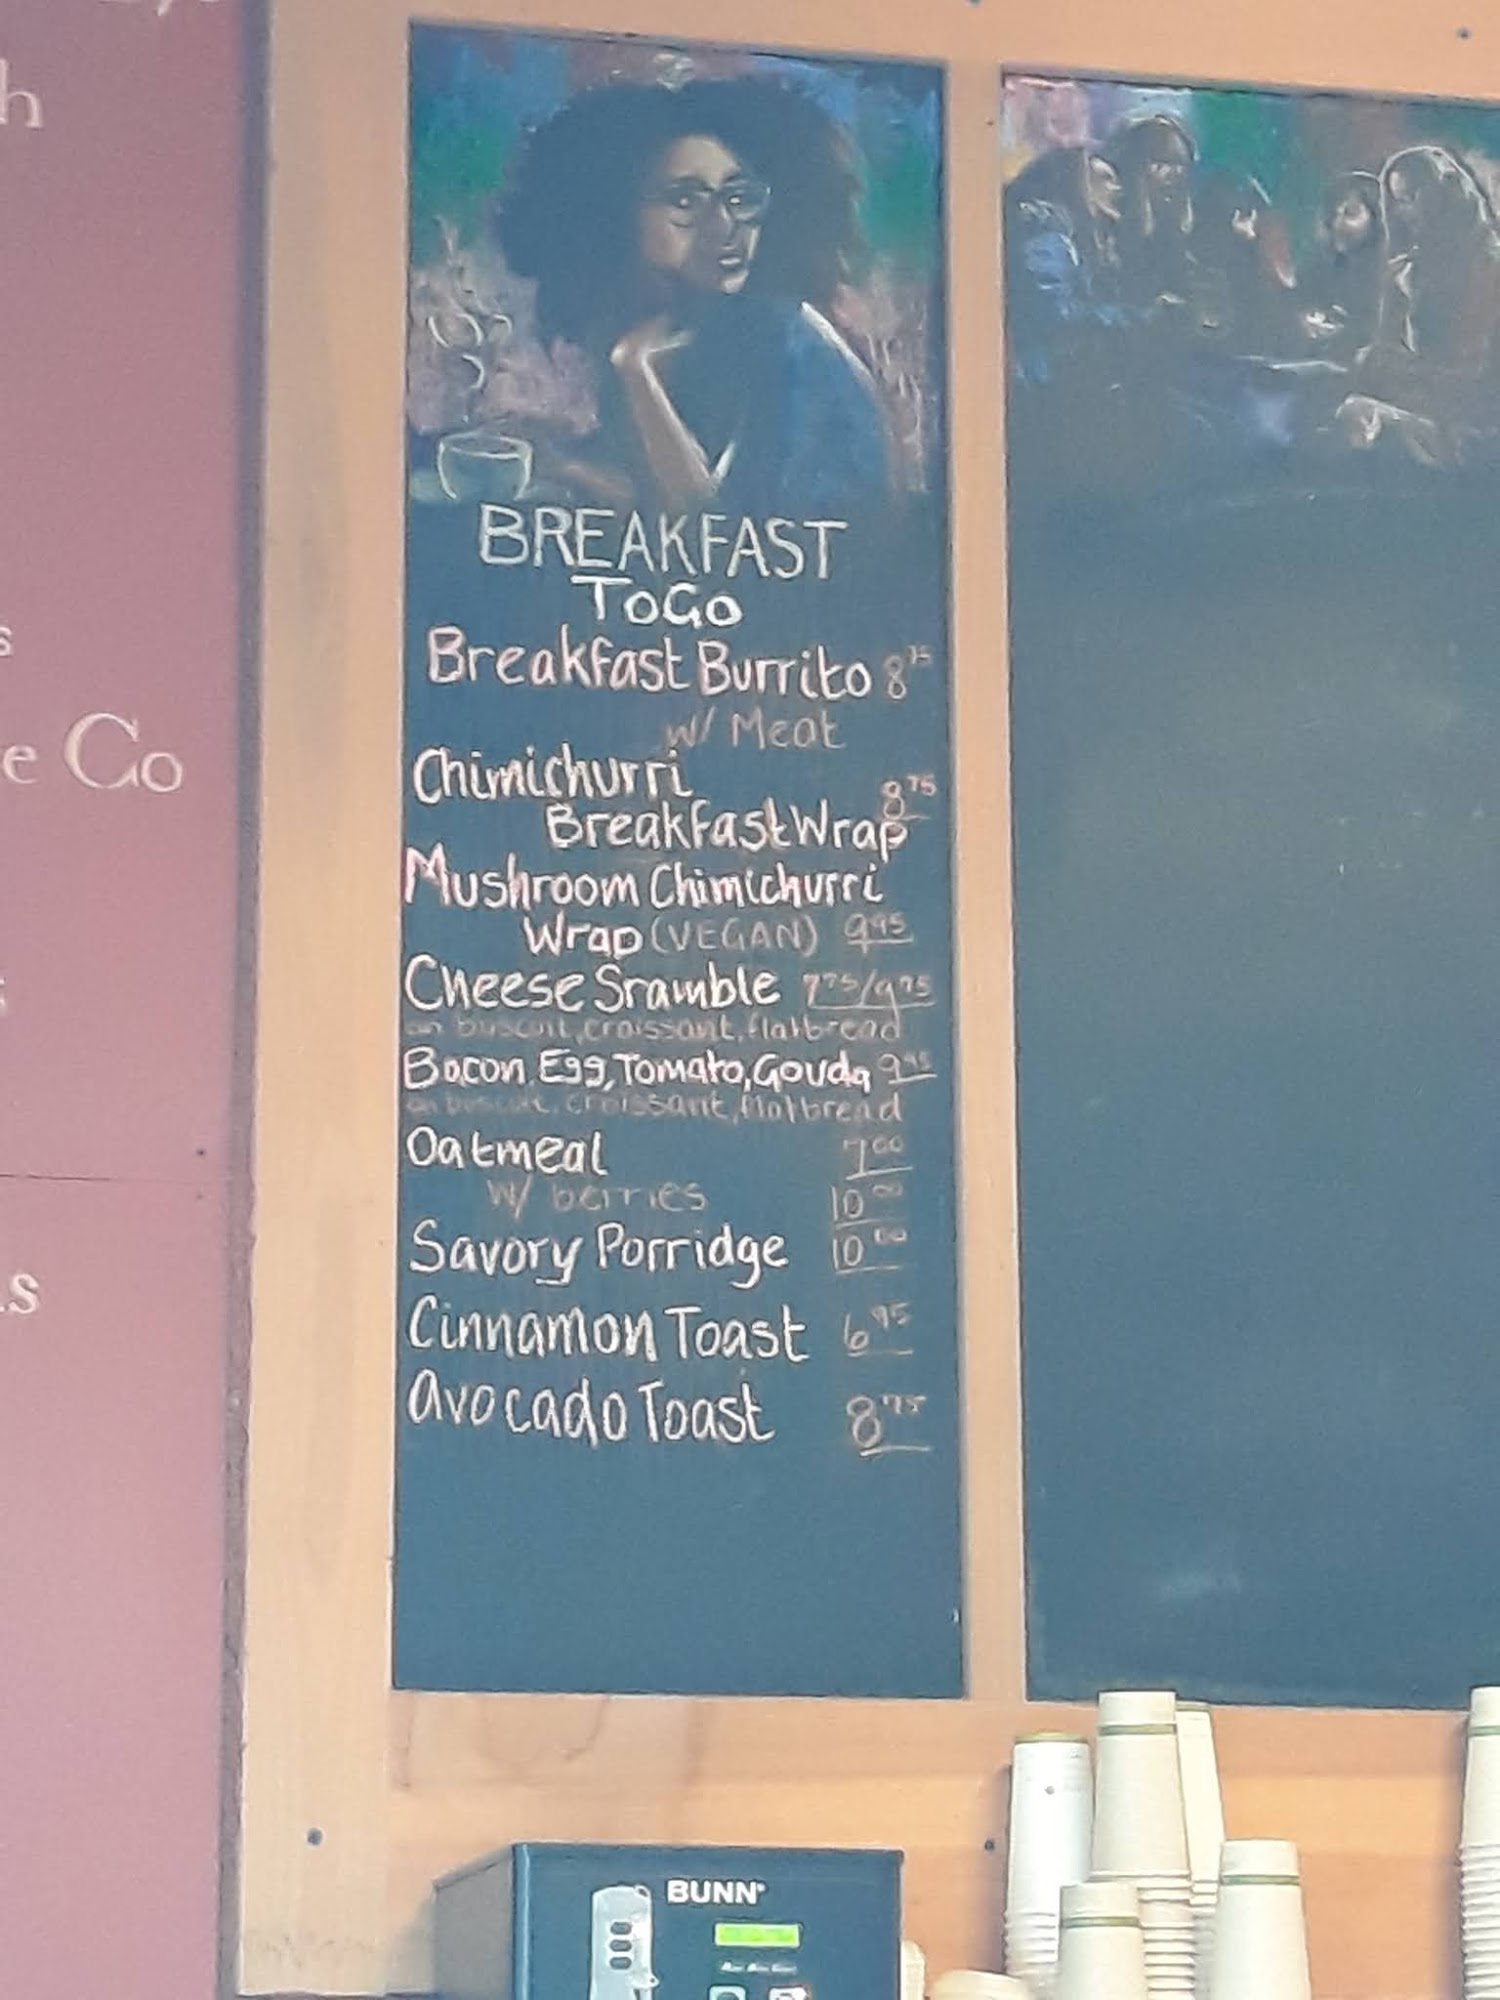 h
s
e Co
s
BREAKFAST
ToGo
Breakfast Burrito 8 75
w/ Meat
Chimichurri 8 75
Breakfast Wrap
Mushroom Chimichurri
Wrap (VEGAN) 9 95
Cheese Sramble 7 75/9 75
on buscuit, croissant, flatbread
Bacon, Egg, Tomato, Gouda 9 95
on buscuit, croissant, flatbread
Oatmeal 7 00
w/ berries 10 00
Savory Porridge 10 00
Cinnamon Toast 6 95
Avocado Toast 8 75
BUNN